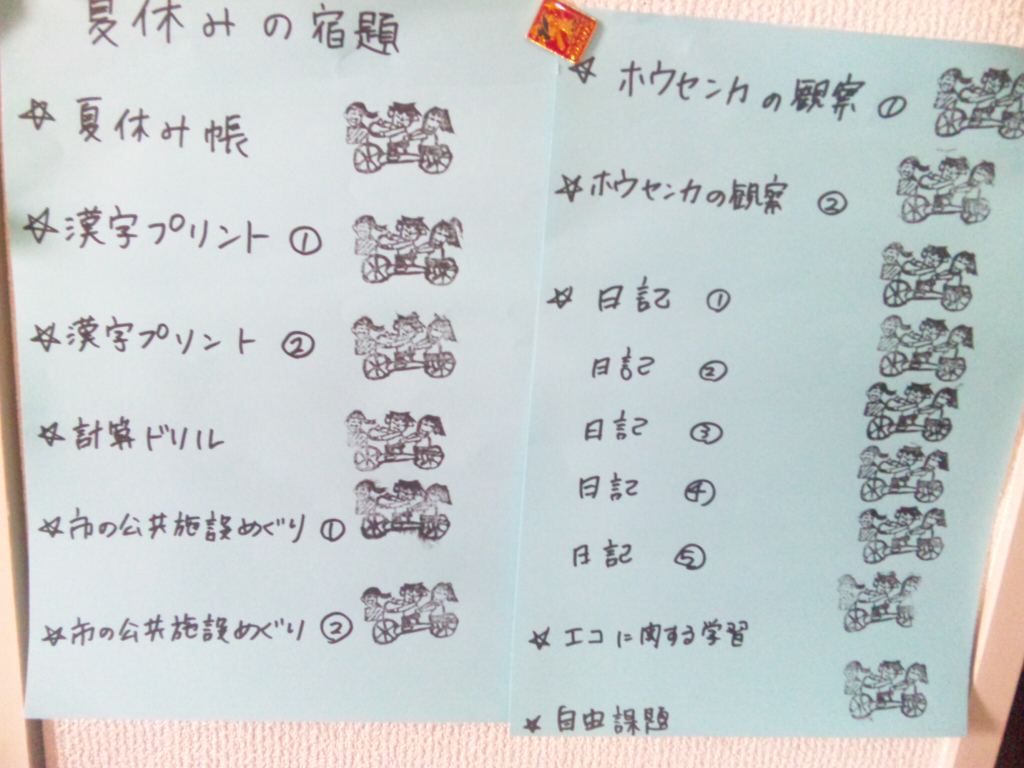 夏休みの宿題
☆ 夏休み帳
☆ 漢字プリント ①
☆ 漢字プリント ②
☆ 計算ドリル
☆ 市の公共施設めぐり ①
☆ 市の公共施設めぐり ②
☆ ホウセンカの観察 ①
☆ ホウセンカの観察 ②
☆ 日記 ①
日記 ②
日記 ③
日記 ④
日記 ⑤
☆ エコに関する学習
☆ 自由課題